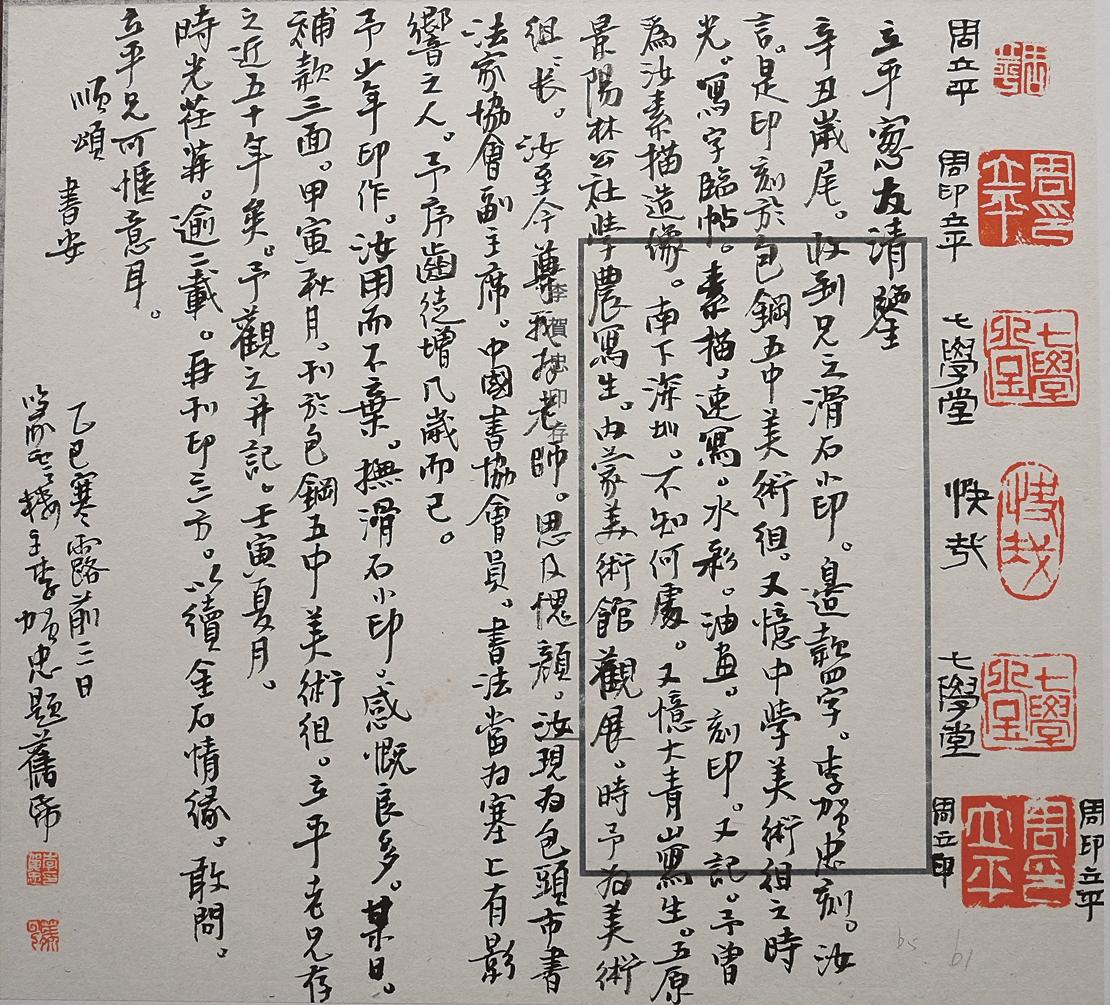 周立平
周印立平
七學堂
快哉
七學堂
周印立平
周立印
立平窗友清鑒
辛丑歲尾。收到兄之滑石小印。邊款四字。李加忠刻。汝
言。是印刻於包鋼五中美術組。又憶中學美術組之時
光。寫字臨帖。素描。速寫。水彩。油畫。刻印。又記。予曾
為汝素描造像。南下深圳。不知何處。又憶大青山寫生。五原
景陽林公社學農寫生。內蒙美術館觀展。時予為美術
組長。汝至今尊我為老師。思及愧顏。汝現為包頭市書
法家協會副主席。中國書協會員。書法當為塞上有影
響之人。予序齒徒增几歲而已。
予少年印作。汝用而不棄。撫滑石小印。感慨良多。某日。
補款三面。甲寅秋月。刊於包鋼五中美術組。立平老兄存
之近五十年矣。予觀之并記。壬寅夏月。
時光荏苒。逾二載。再刊印三方。以續金石情緣。敢問。
立平兄可愜意耳。
順頌
書安
乙巳寒露前三日
樓主李加忠題舊帋
李賀忠印存